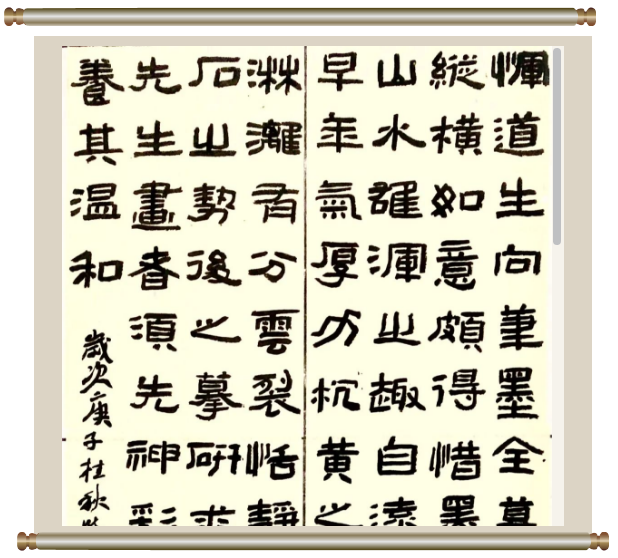 惲道生向筆墨全
縱橫如意頗得惜墨
山水雄渾之趣自遠
早年氣厚力抗黄之
淋灕有分雲裂恬靜
石之勢後之摹研求
先生畫者須先神彩
養其温和
歲次庚子桂秋